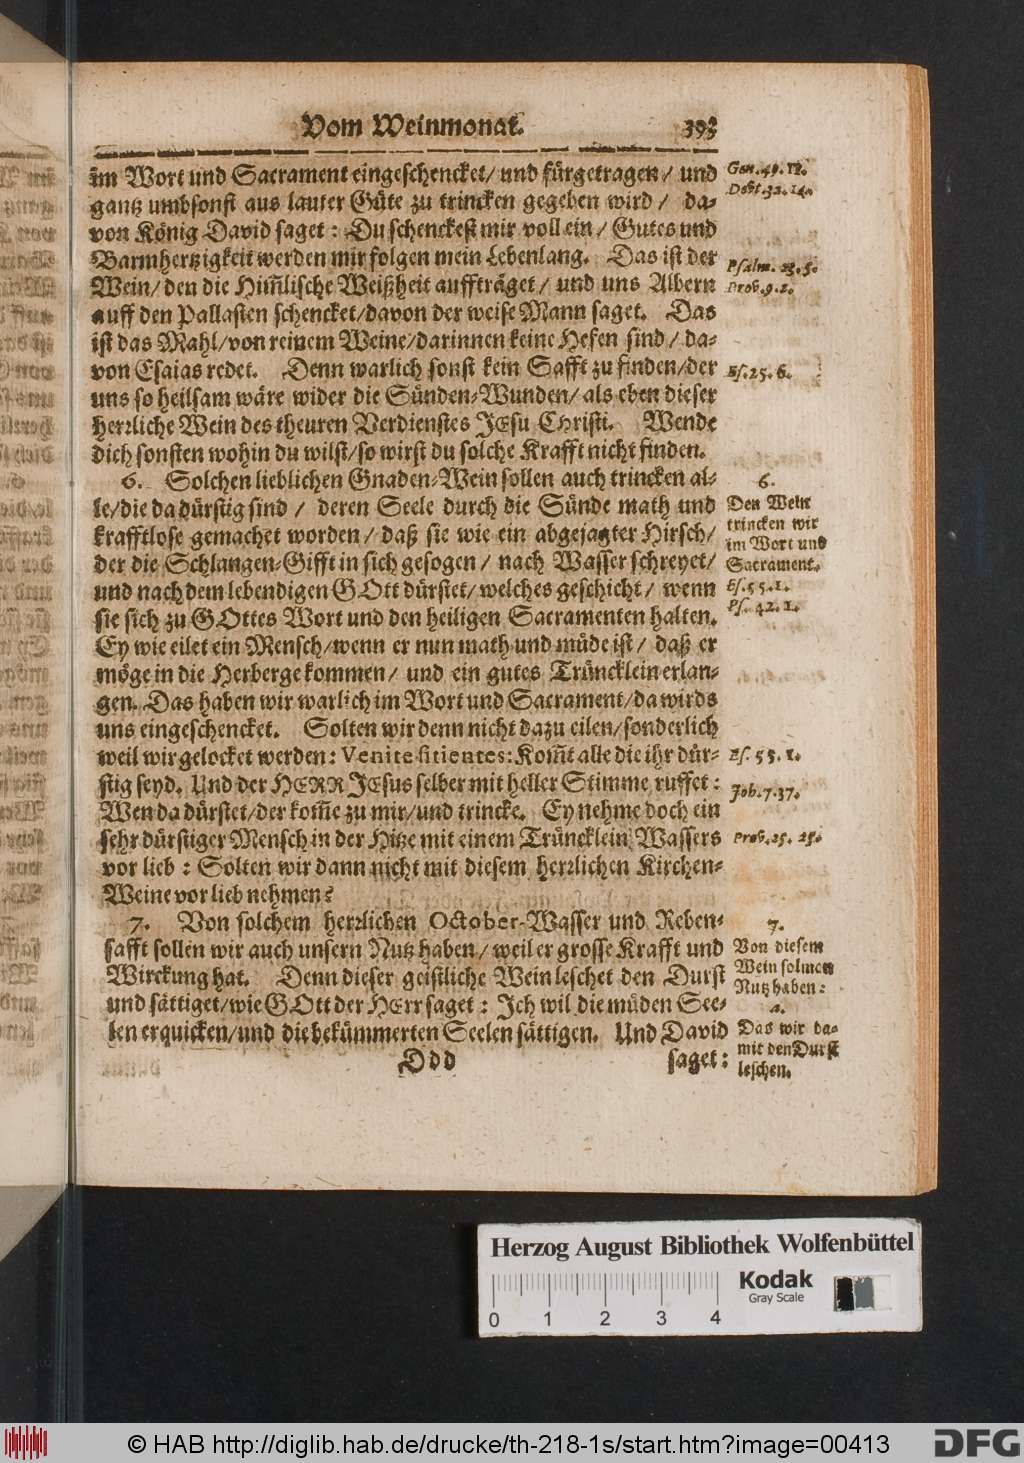 Vom Weinmonat. 393
im Wort und Sacrament eingeschencket/ und fürgetragen/ und
gantz umbsonst aus lauter Güte zu trincken gegeben wird/ da-
von König David saget: Du schenckest mir voll ein/ Gutes und
Barmhertzigkeit werden mir folgen mein Lebenlang. Das ist der
Wein/ den die Him̃lische Weißheit auffträget/ und uns Albern
auff den Pallasten schencket/ davon der weise Mann saget. Das
ist das Mahl/ von reinem Weine/ darinnen keine Hefen sind/ da-
von Esaias redet. Denn warlich sonst kein Safft zu finden/ der
uns so heilsam wäre wider die Sünden-Wunden/ als eben dieser
herrliche Wein des theuren Verdienstes JEsu Christi. Wende
dich sonsten wohin du wilst/ so wirst du solche Krafft nicht finden.
6. Solchen lieblichen Gnaden-Wein sollen auch trincken al-
le/ die da dürstig sind/ deren Seele durch die Sünde math und
krafftlose gemachet worden/ daß sie wie ein abgejagter Hirsch/
der die Schlangen-Gifft in sich gesogen/ nach Wasser schreyet/
und nach dem lebendigen GOtt dürstet/ welches geschicht/ wenn
sie sich zu GOttes Wort und den heiligen Sacramenten halten.
Ey wie eilet ein Mensch/ wenn er nun math und müde ist/ daß er
möge in die Herberge kommen/ und ein gutes Trüncklein erlan-
gen. Das haben wir warlich im Wort und Sacrament/ da wirds
uns eingeschencket. Solten wir denn nicht dazu eilen/ sonderlich
weil wir gelocket werden: Venite sitientes: Kom̃t alle die ihr dür-
stig seyd. Und der HERR JEsus selber mit heller Stimme ruffet:
Wen da dürstet/ der kom̃e zu mir/ und trincke. Ey nehme doch ein
sehr dürstiger Mensch in der Hitze mit einem Trüncklein Wassers
vor lieb: Solten wir dann nicht mit diesem herrlichen Kirchen-
Weine vor lieb nehmen?
7. Von solchem herrlichen October-Wasser und Reben-
safft sollen wir auch unsern Nutz haben/ weil er grosse Krafft und
Wirckung hat. Denn dieser geistliche Wein leschet den Durst
und sättiget/ wie GOtt der HErr saget: Ich wil die müden See-
len erquicken/ und die bekümmerten Seelen sättigen. Und David
Ddd saget:
Gen. 49. 12.
Deut. 32. 14.
Psalm. 23. 5.
Prov. 9. 2.
Es. 25. 6.
6.
Den Wein
trincken wir
im Wort und
Sacrament.
Es. 55. 1.
Ps. 42. 2.
Es. 55. 1.
Joh. 7. 37.
Prov. 25. 25.
7.
Von diesem
Wein solmen
Nutz haben:
a.
Das wir da-
mit den Durst
leschen.
Herzog August Bibliothek Wolfenbüttel
Kodak
Gray Scale
0 1 2 3 4
© HAB http://diglib.hab.de/drucke/th-218-1s/start.htm?image=00413
DFG